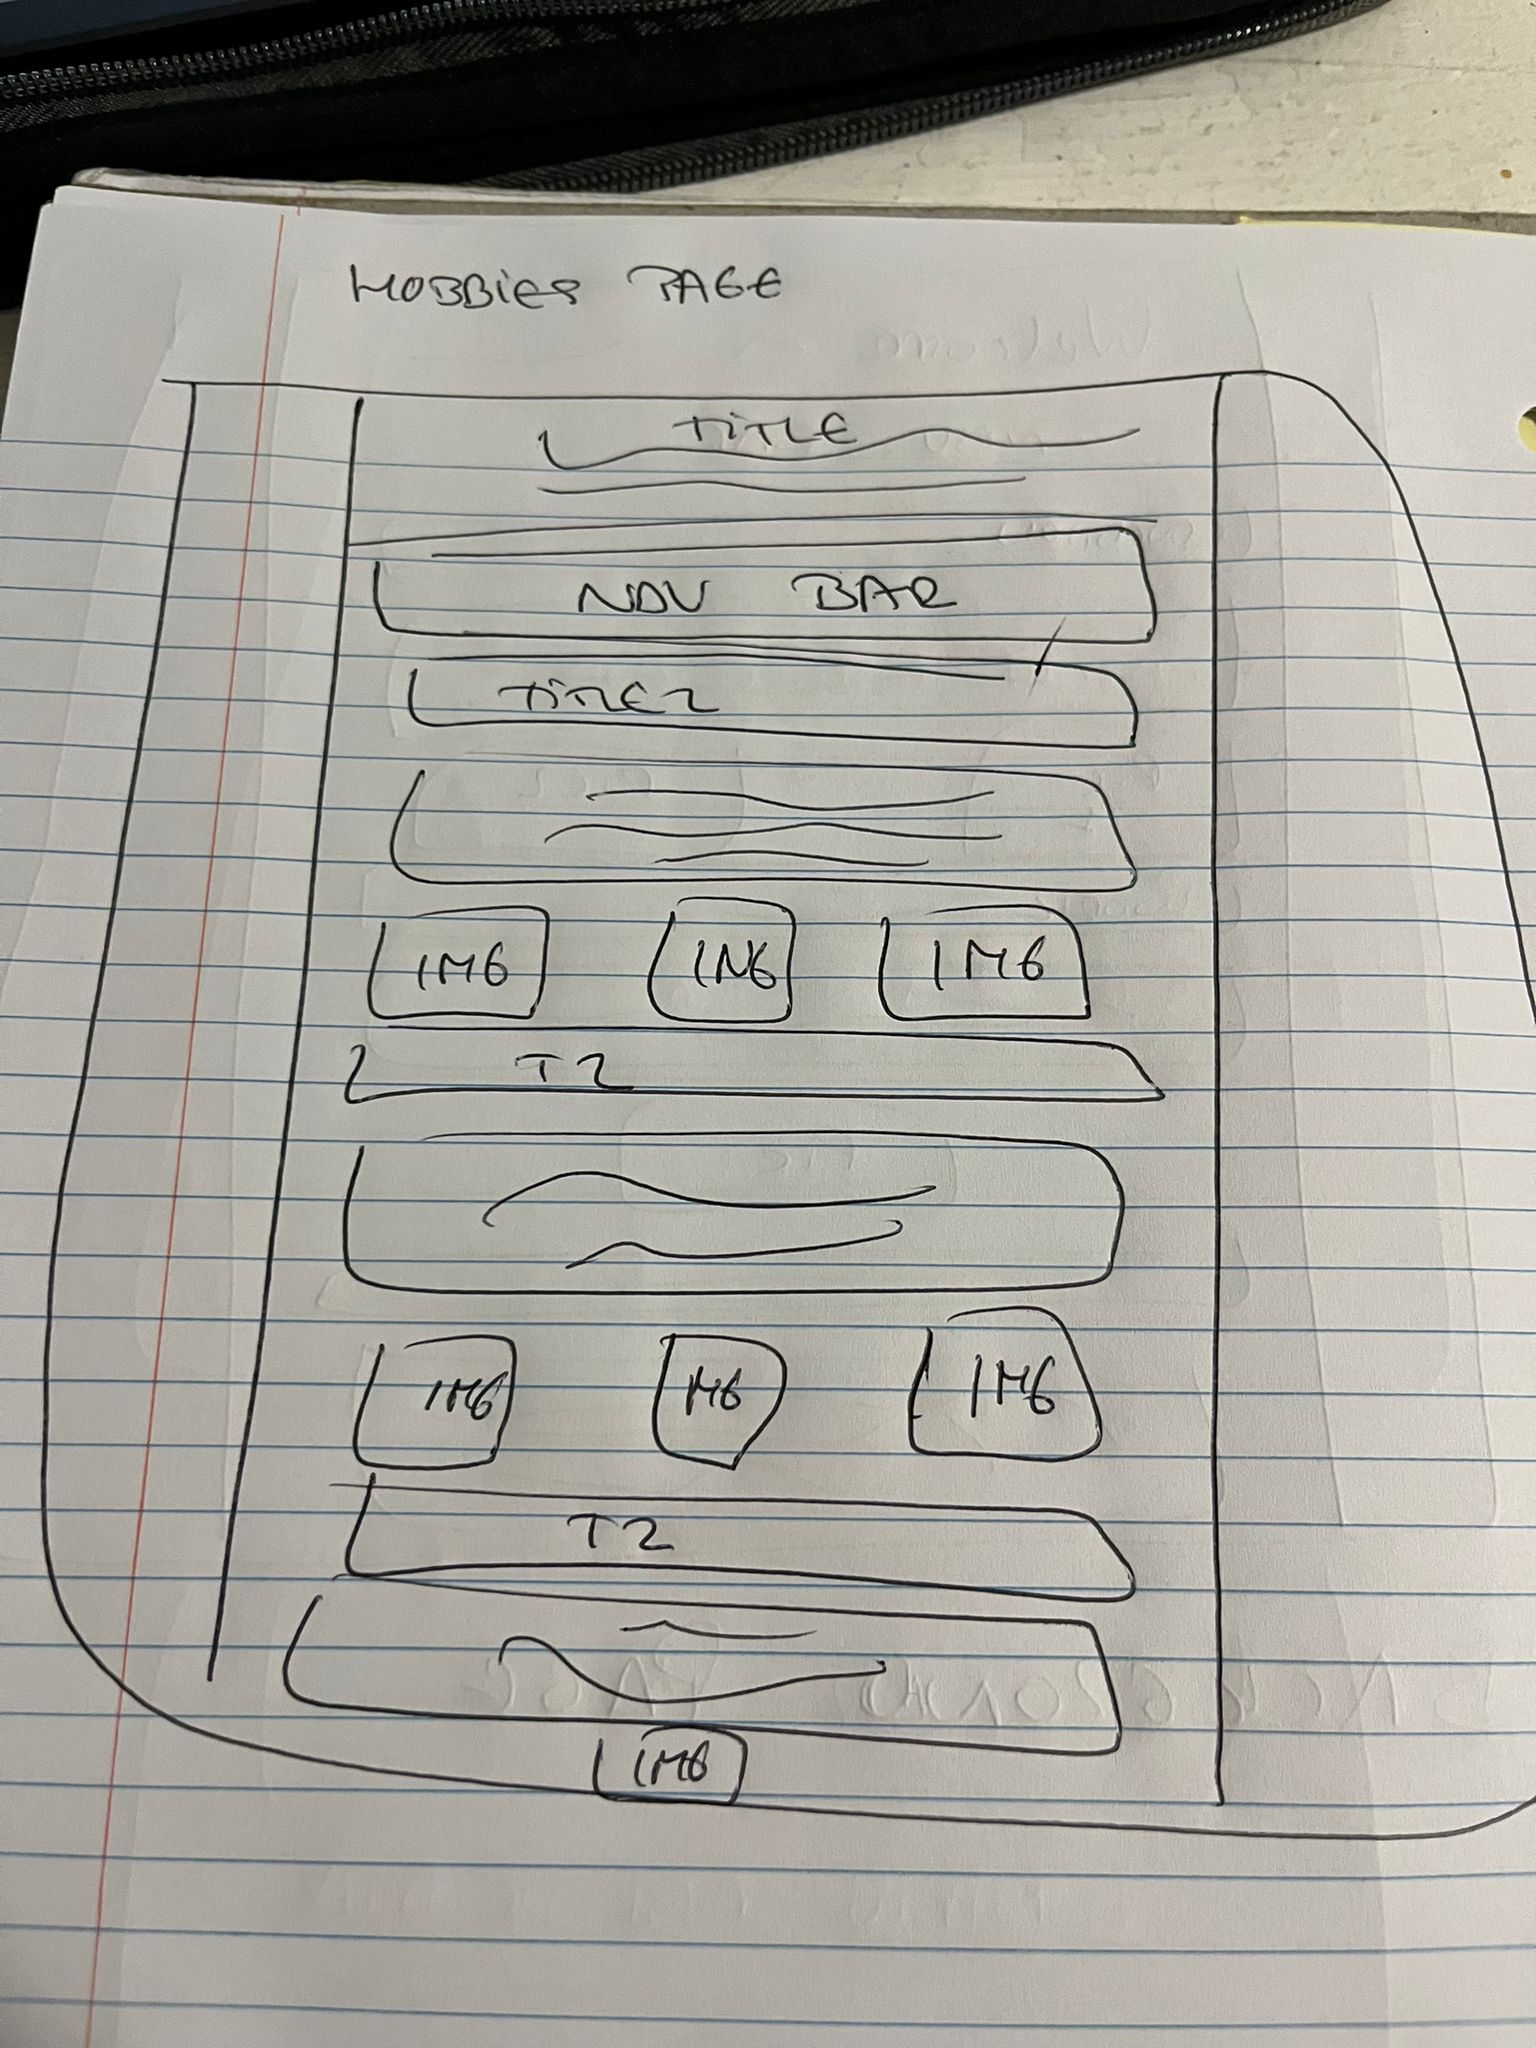 HOBBIES PAGE
TITLE
NAV BAR
TITLE 2
IMG IMG IMG
T2
IMG IMG IMG
T2
IMG